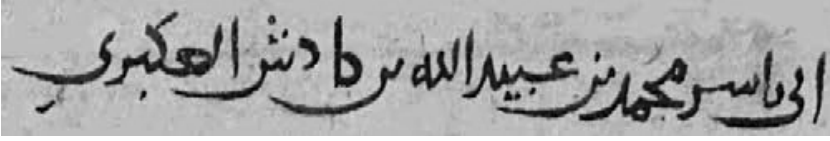 ابى ياسر محمد بن عبيد الله بن كادش العكبري